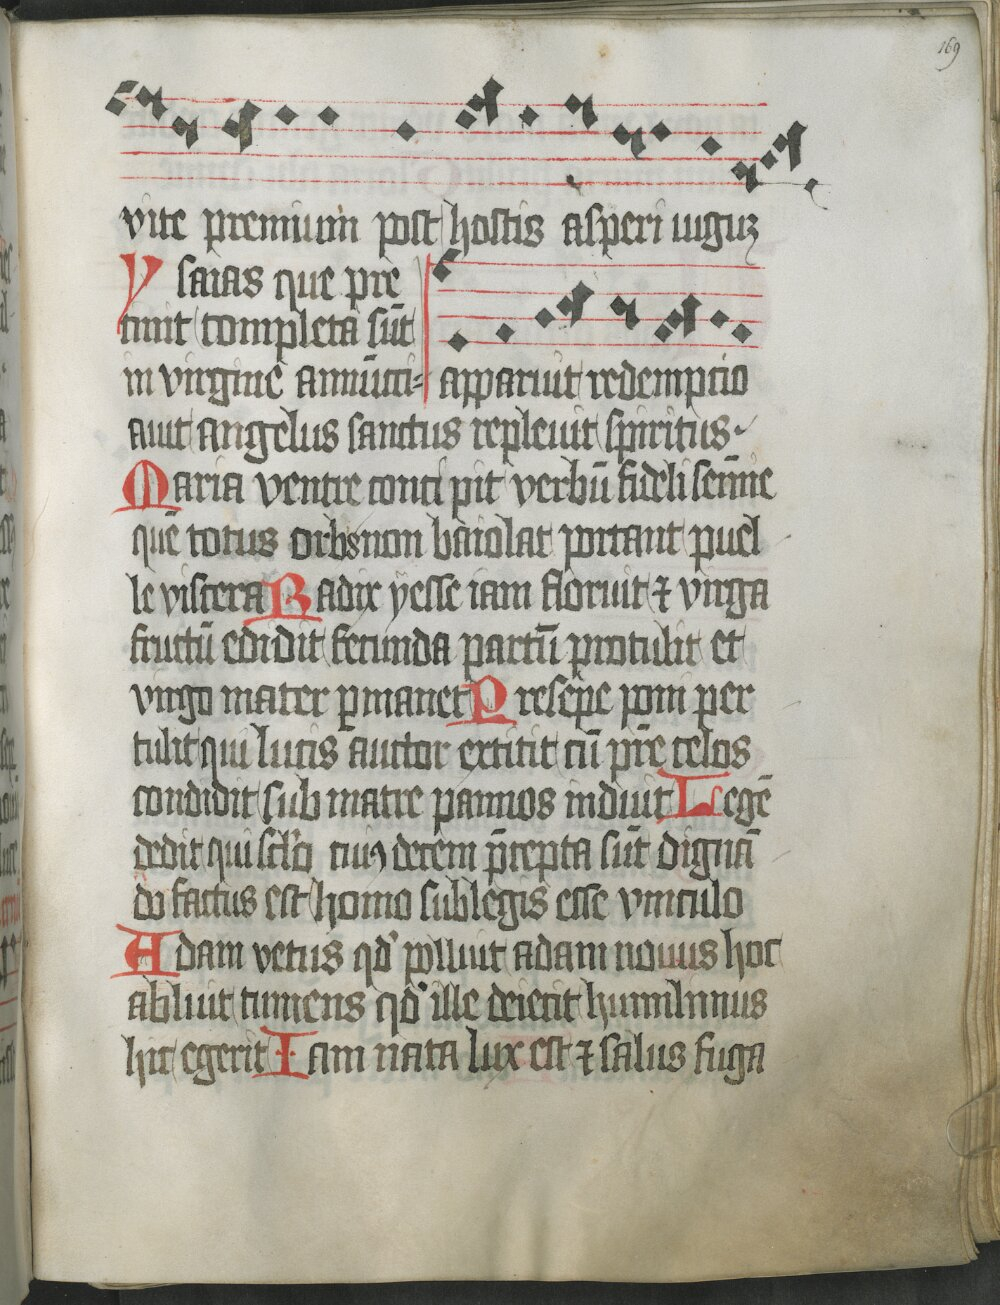 169
vite premium post hostis asperi iugum
Ysaias que pre
cinit completa sūt
in virgine annūci=
apparuit redemptio
auit angelus sanctus repleuit spiritus
Maria ventre concipit verbū fideli semīe
quē totus orbs non baiolat portant puel
le viscera Radix yesse iam floruit ⁊ virga
fructū edidit fecunda partū protulit et
virgo mater p̄manet Presepe poni per
tulit qui lucis auctor extitit cū pr̄e celos
condidit sub matre pannos induit Legē
dedit qui sc̄lo cuiꝰ decem p̄cepta sūt dignā
do factus est homo sub legis esse vinculo
Adam vetus qd' polluit adam nouus hoc
abluit tumens qd' ille deiecit humilimus
hic egerit Iam nata lux est ⁊ salus fuga